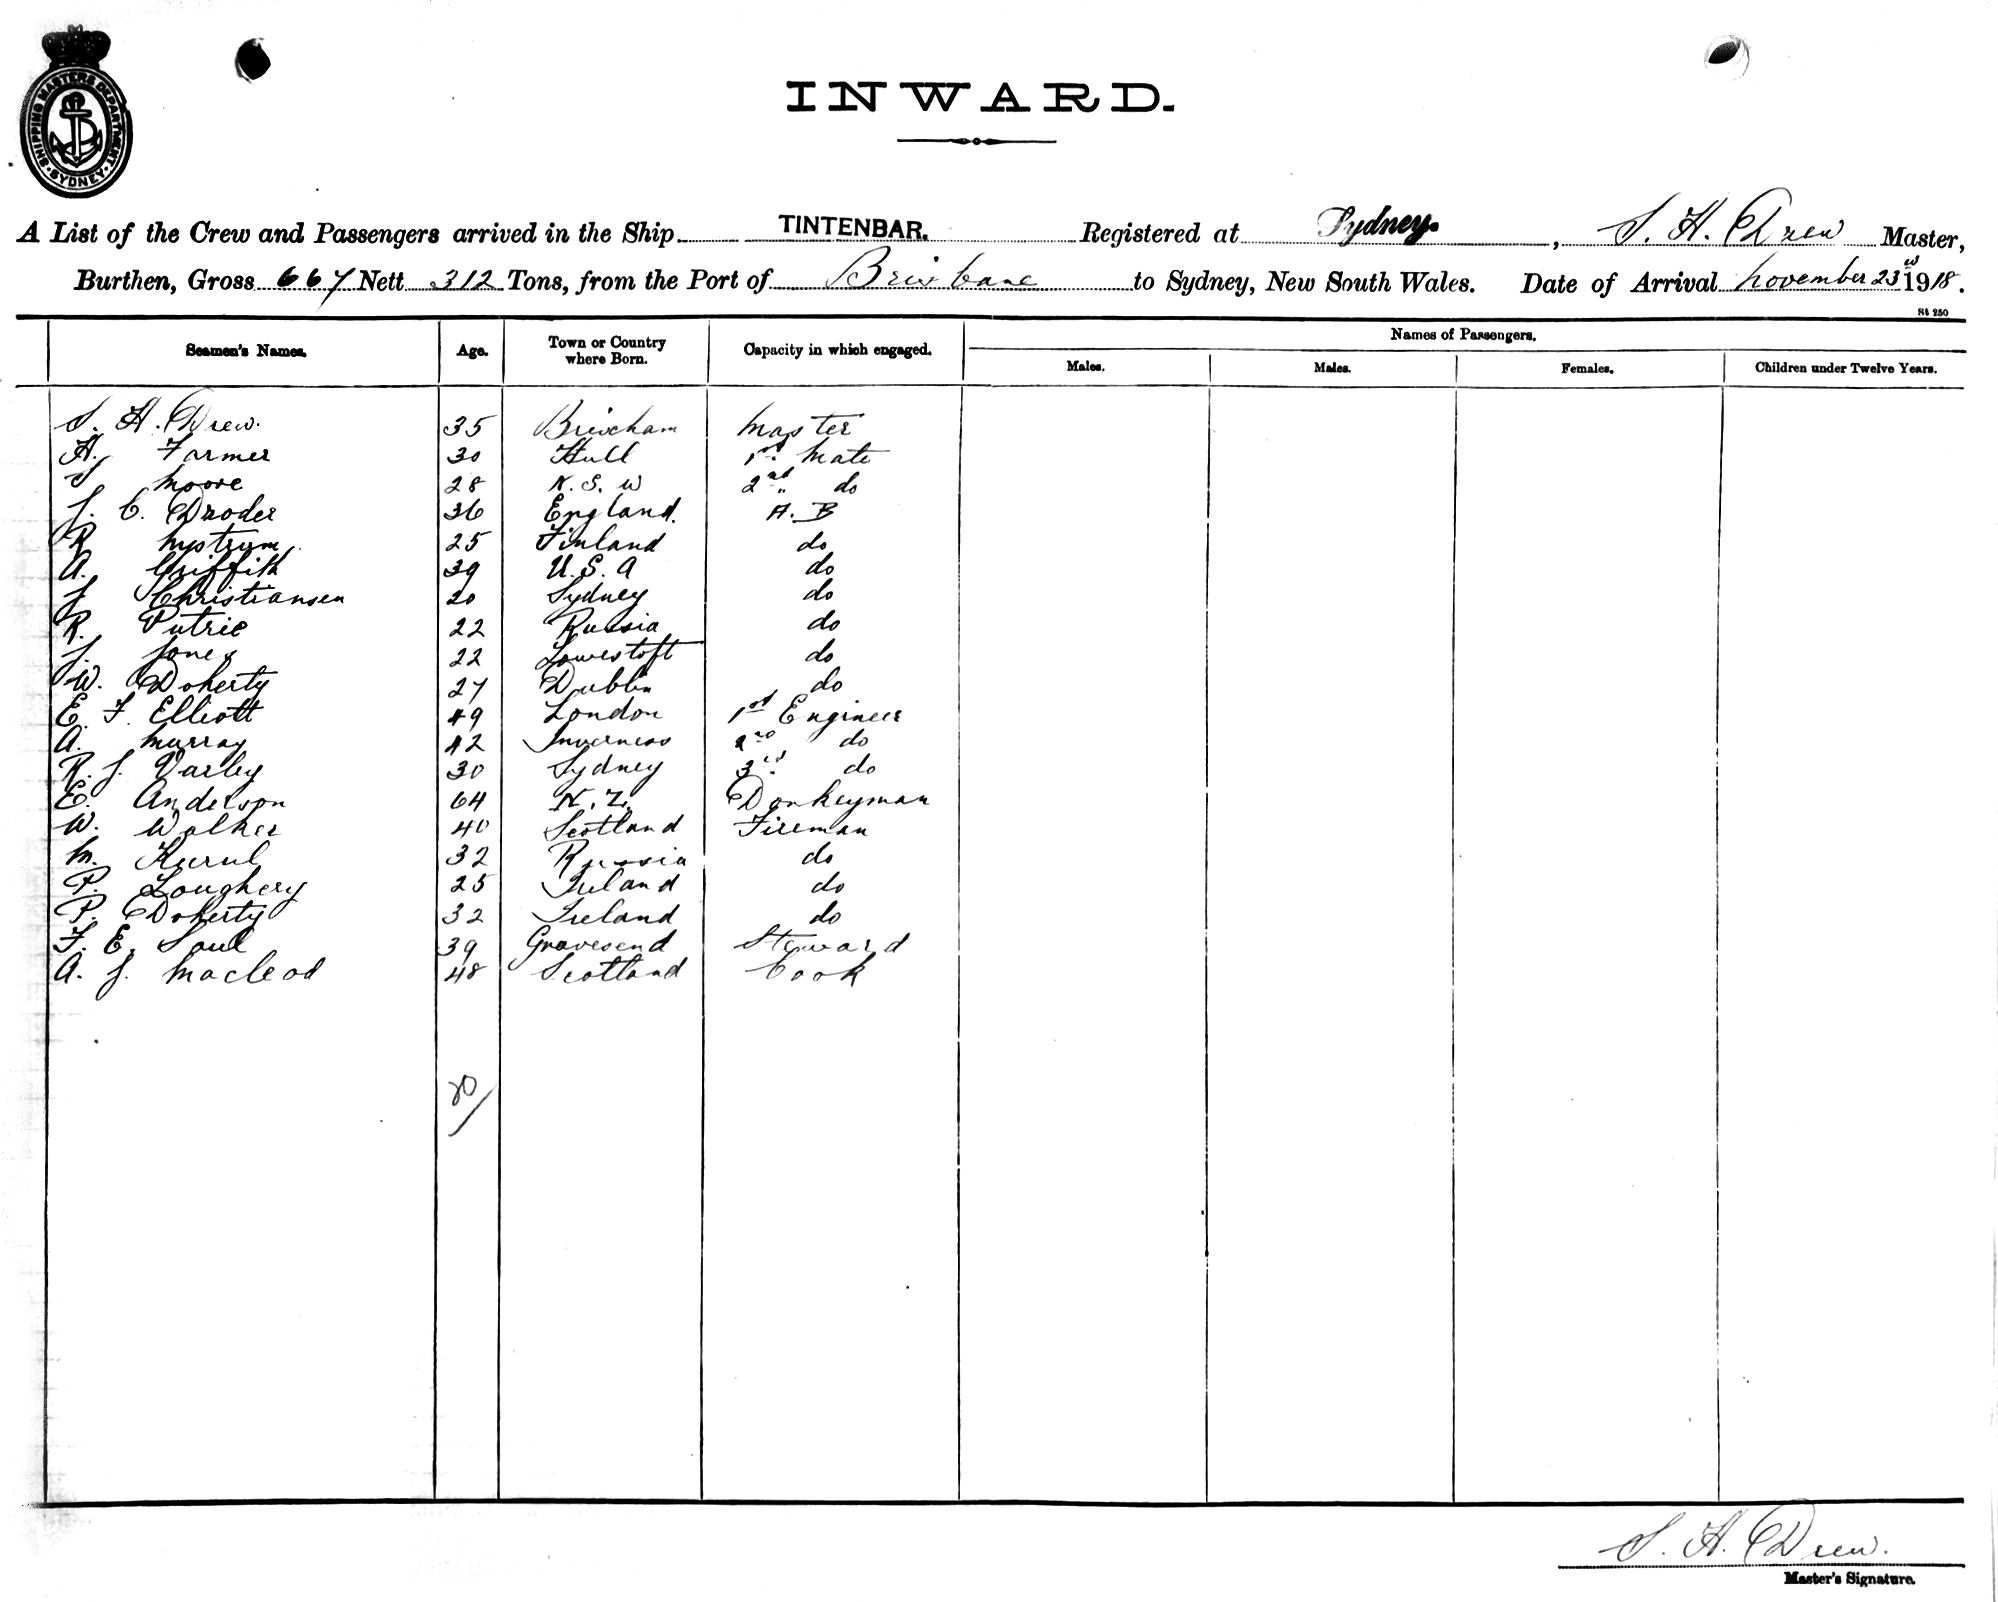 SHIPPING MASTERS DEPARTMENT
SYDNEY
INWARD.
A List of the Crew and Passengers arrived in the Ship TINTENBAR. Registered at Sydney. , S. H. Drew Master,
Burthen, Gross 667 Nett 312 Tons, from the Port of Brisbane to Sydney, New South Wales. Date of Arrival November 23rd 1918.
St 250
Seamen's Names. Age. Town or Country where Born. Capacity in which engaged. Names of Passengers.
Males. Males. Females. Children under Twelve Years.
S. H. Drew. 35 Brixham Master
H. Farmer 30 Hull 1st Mate
S Moore 28 N. S. W 2nd do
J. C. 36 England. A. B
R Nystrom. 25 Finland do
A. Griffith 39 U. S. A do
J Christiansen 20 Sydney do
R. Putrie 22 Russia do
J. Jones 22 Lowestoft do
W. Doherty 27 Dublin do
E. F. Elliott 49 London 1st Engineer
A. Murray 42 Inverness 2nd do
R. J. Varley 30 Sydney 3rd do
E. Anderson 64 N. Z. Donkeyman
W. Walker 40 Scotland Fireman
M. 32 Russia do
P. Loughery 25 Ireland do
P. Doherty 32 Ireland do
F. E. Saul 39 Gravesend Steward
A. J. Macleod 48 Scotland Cook
20/
S. H. Drew.
Master's Signature.